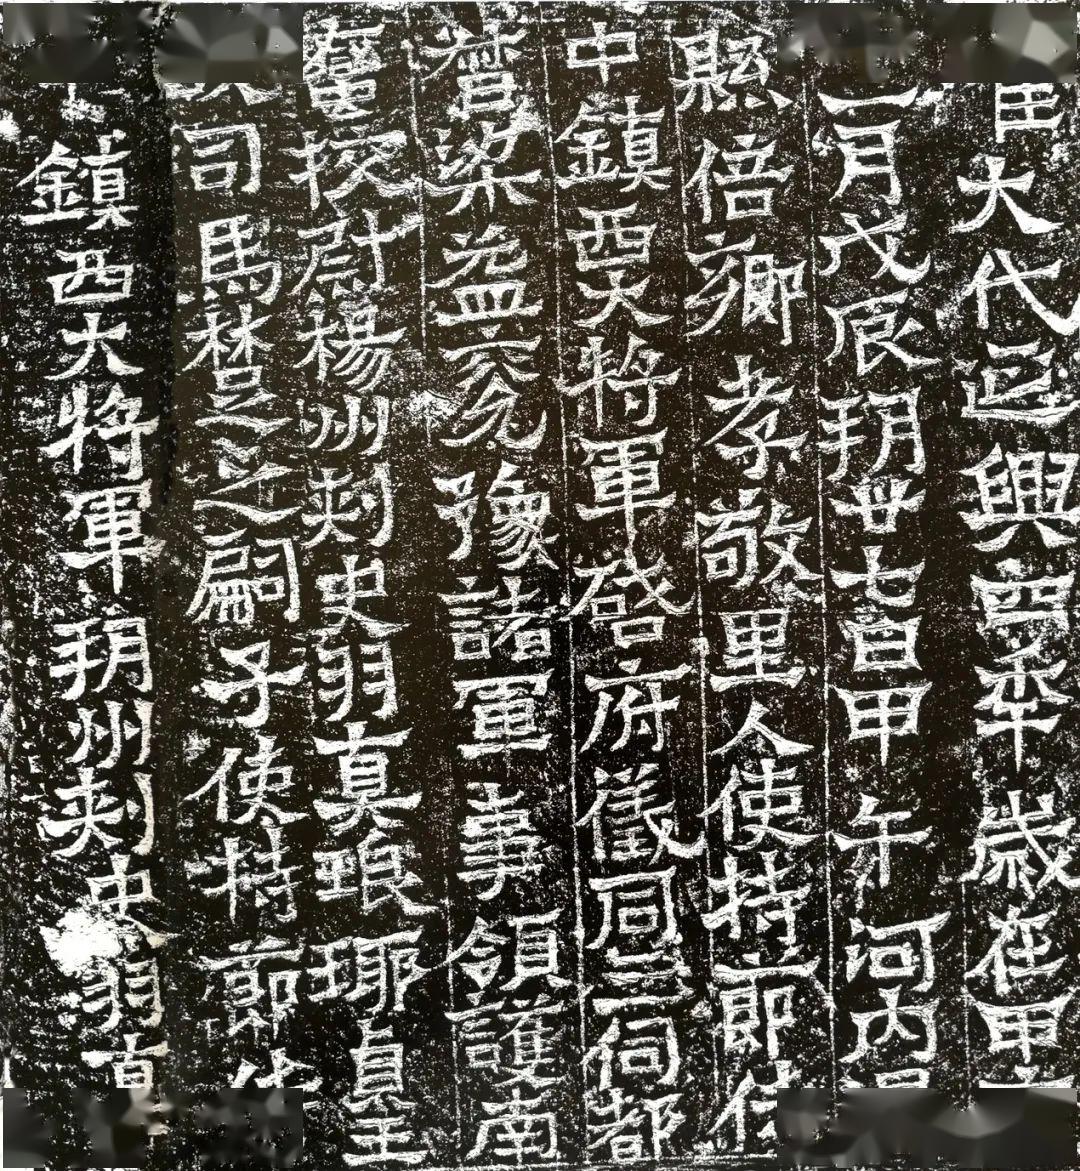 大代延興四年歲在甲
一月戊辰朔廿七日甲午河内
縣倍鄉孝敬里人使持節侍
中鎮西大將軍啓府儀同三伺都
督梁益兗豫諸軍事領護南
蠻挍尉楊州刾史羽真琅琊貞王
司馬楚之嗣子使持節侍
鎮西大將軍朔州刾史羽真